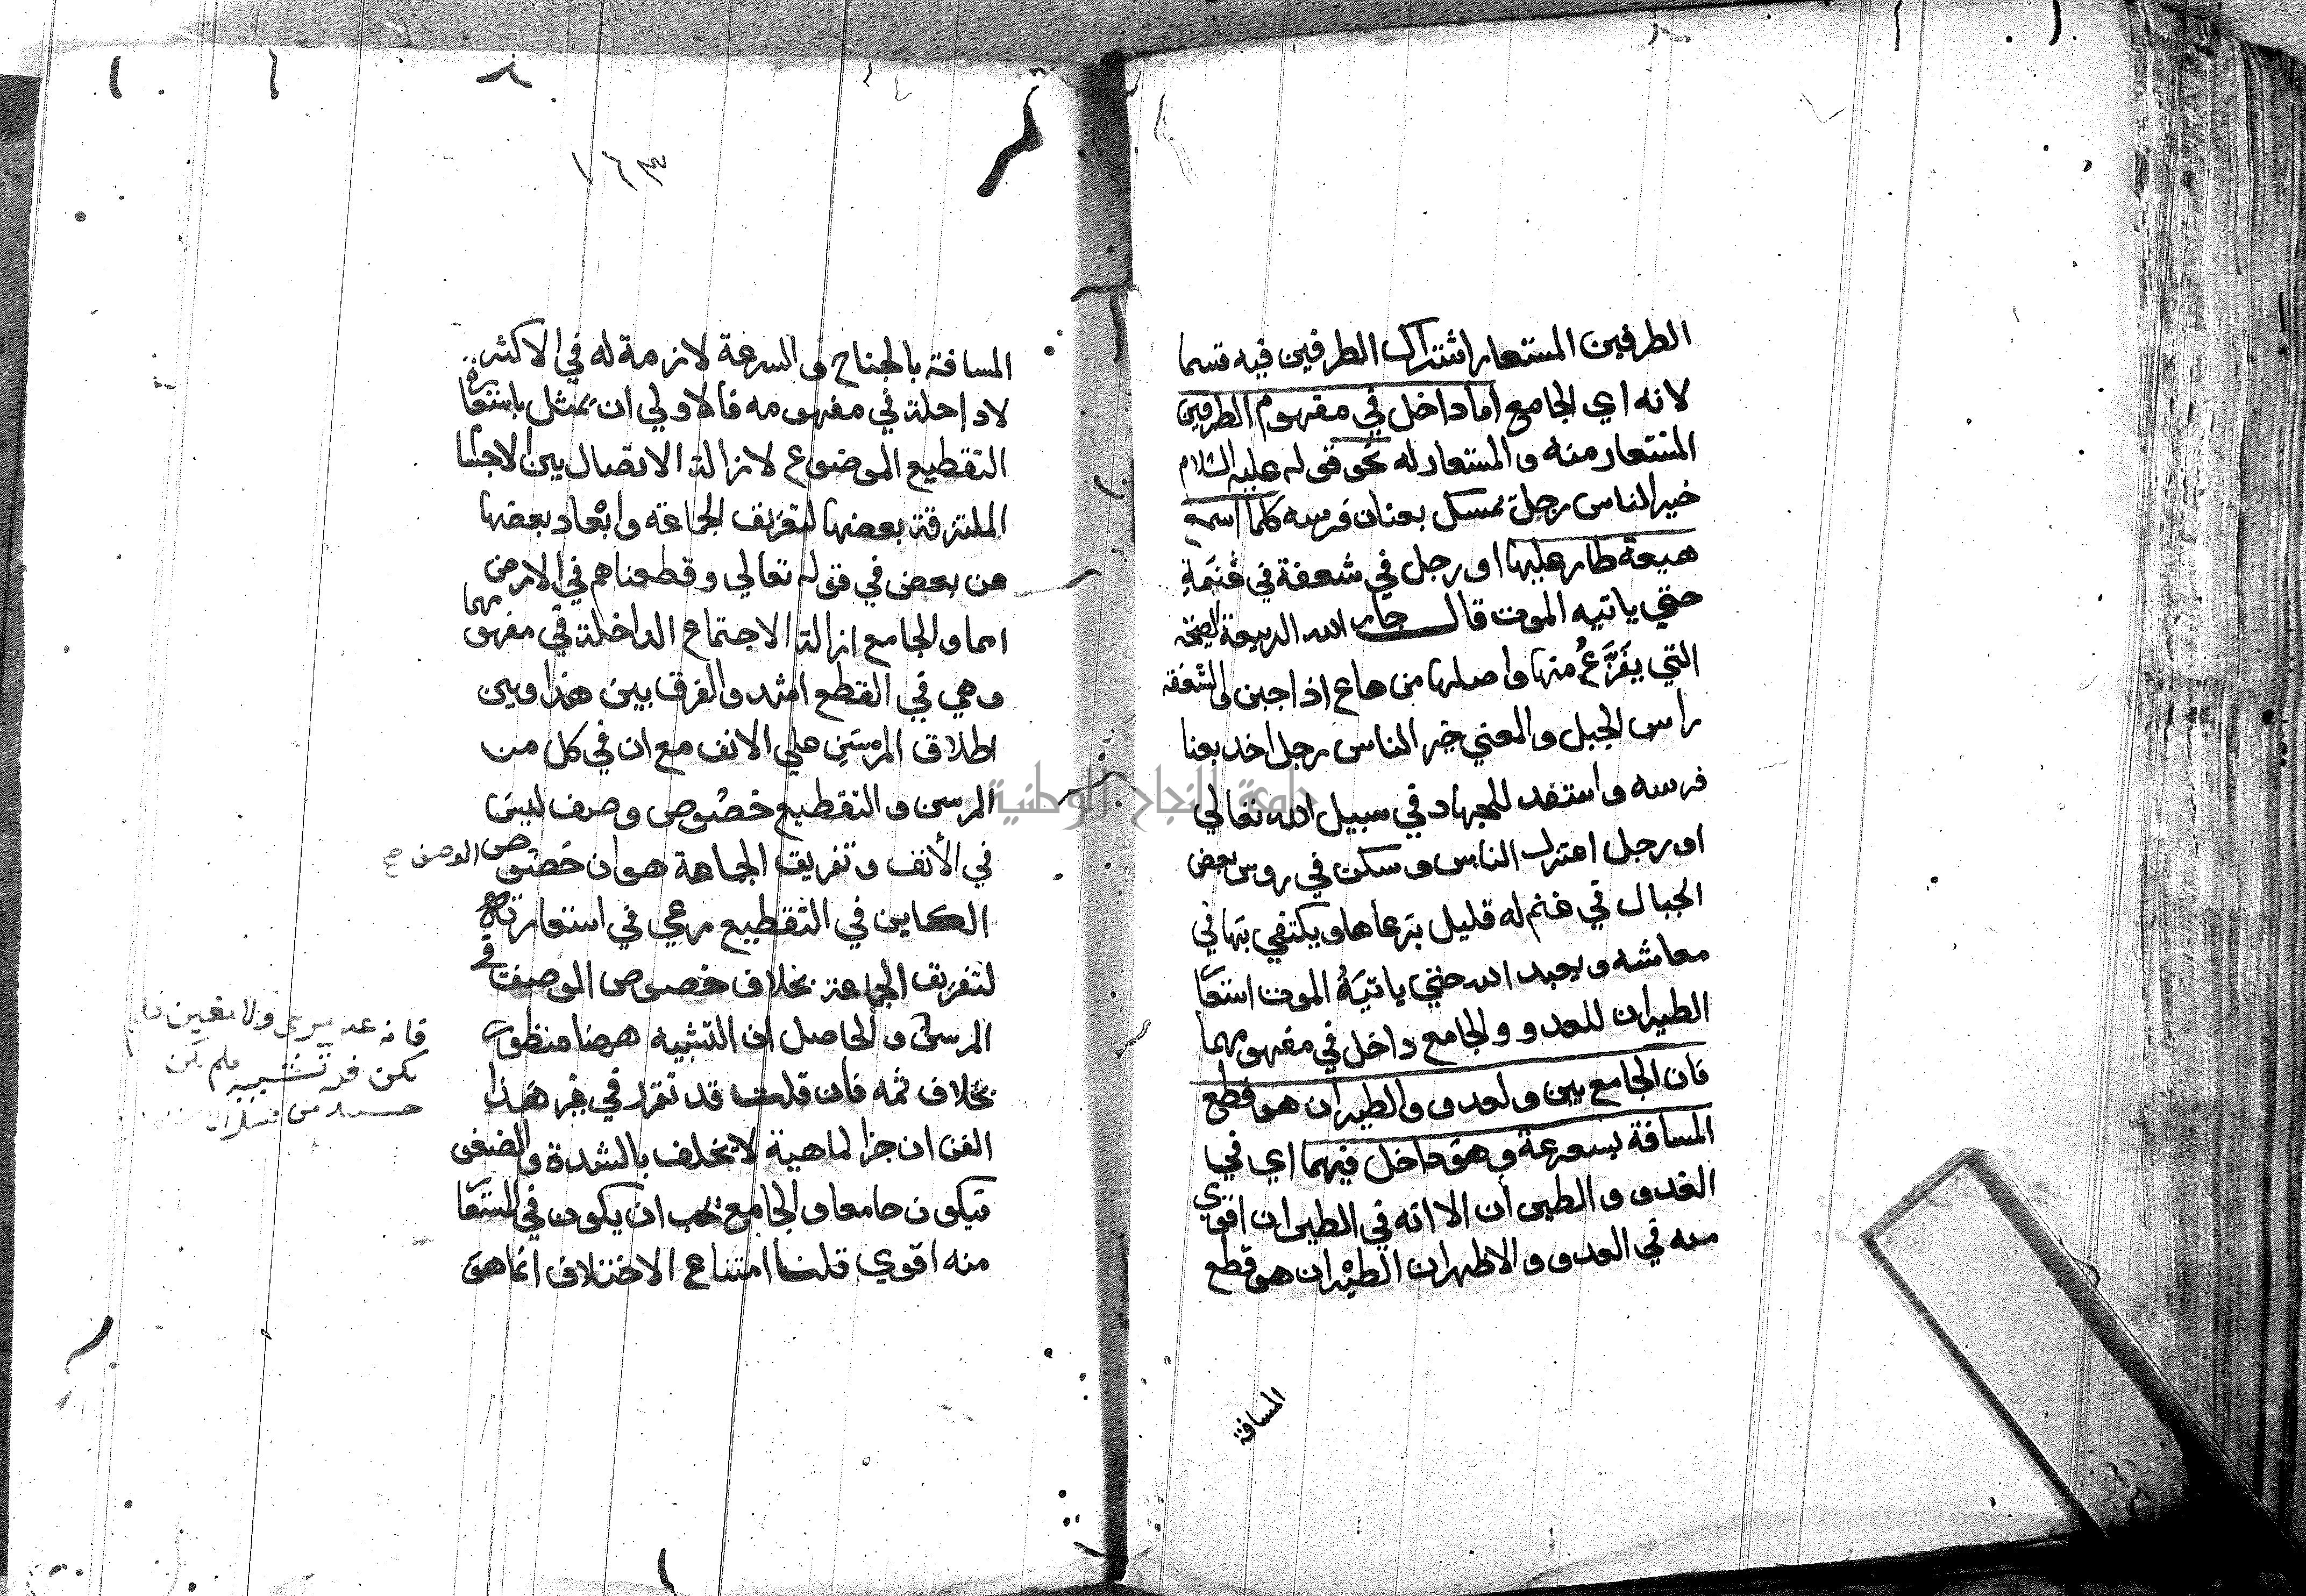 الطرفين المستعار اشتراك الطرفين فيه قسما
لانه اي الجامع اما داخل في مفهوم الطرفين
المستعار منه والمستعار له نحو قوله عليه السلام
خير الناس رجل يمسك بعنان فرسه كلما اسمع
هيعة طار عليها او رجل في شعفة في غنيمة
حتي ياتيه الموت قال جار الله الهيعة الصيحة
التي يفزع منها واصلها من هاع اذا جبن والشعفة
راس الجبل والمعني خير الناس رجل اخذ بعنا
فرسه واستعد للجهاد في سبيل الله تعالي
او رجل اعتزل الناس وسكن في روس بعض
الجبال في غنم له قليل يرعاها ويكتفي بها في
معاشه ويعبد الله حتي ياتيه الموت استعا
الطيران للعدو والجامع داخل في مفهومهما
فان الجامع بين ولعدو والطيران هو قطع
المسافة بسعرعة وهو داخل فيهما اي في
العدو والطيران الا انه في الطيران اقوي
منه في العدو والاظهر ان الطيران هو قطع
المسافة
١٦٣
المسافة بالجناح والسرعة لازمة له في الاكثر
لا داخلة في مفهومه فالاولي ان يمثل باستعارة
التقطيع الموضوع لازالة الاتصال بين الاجسا
الملتزقة بعضها لتفريف الجماعة وابعاد بعضها
عن بعض في قوله تعالي وقطعناهم في الارض
امما والجامع ازالة الاجتماع الداخلة في مفهومهما
وهي في القطع اشد والفرق بين هذا وبين
اطلاق المرسن علي الانف مع ان في كل من
المرسن والتقطيع خصوص وصف ليس
في الأنف وتفريق الجماعة هو ان خصوص
الوصف صح
الكاين في التقطيع مرعي في استعارته
لتفريق الجماعة بخلاف خصوص الوصف في
المرسن والحاصل ان التشبيه ههنا منظور
بخلاف ثمه فان قلت قد تقرر في غير هذا
الفن ان جزا لماهية لا يختلف بالشدة والضعف
فيكون جامعا والجامع يجب ان يكون في المستعا
منه اقوي قلنا امتناع الاختلاف انما هو